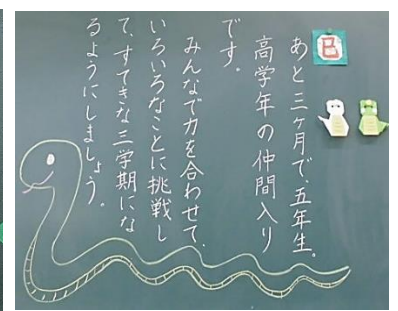 巳
あと三ヶ月で、五年生。
高学年の仲間入り
です。
みんなで力を合わせて、
いろいろなことに挑戦し
て、すてきな三学期にな
るようにしましょう。